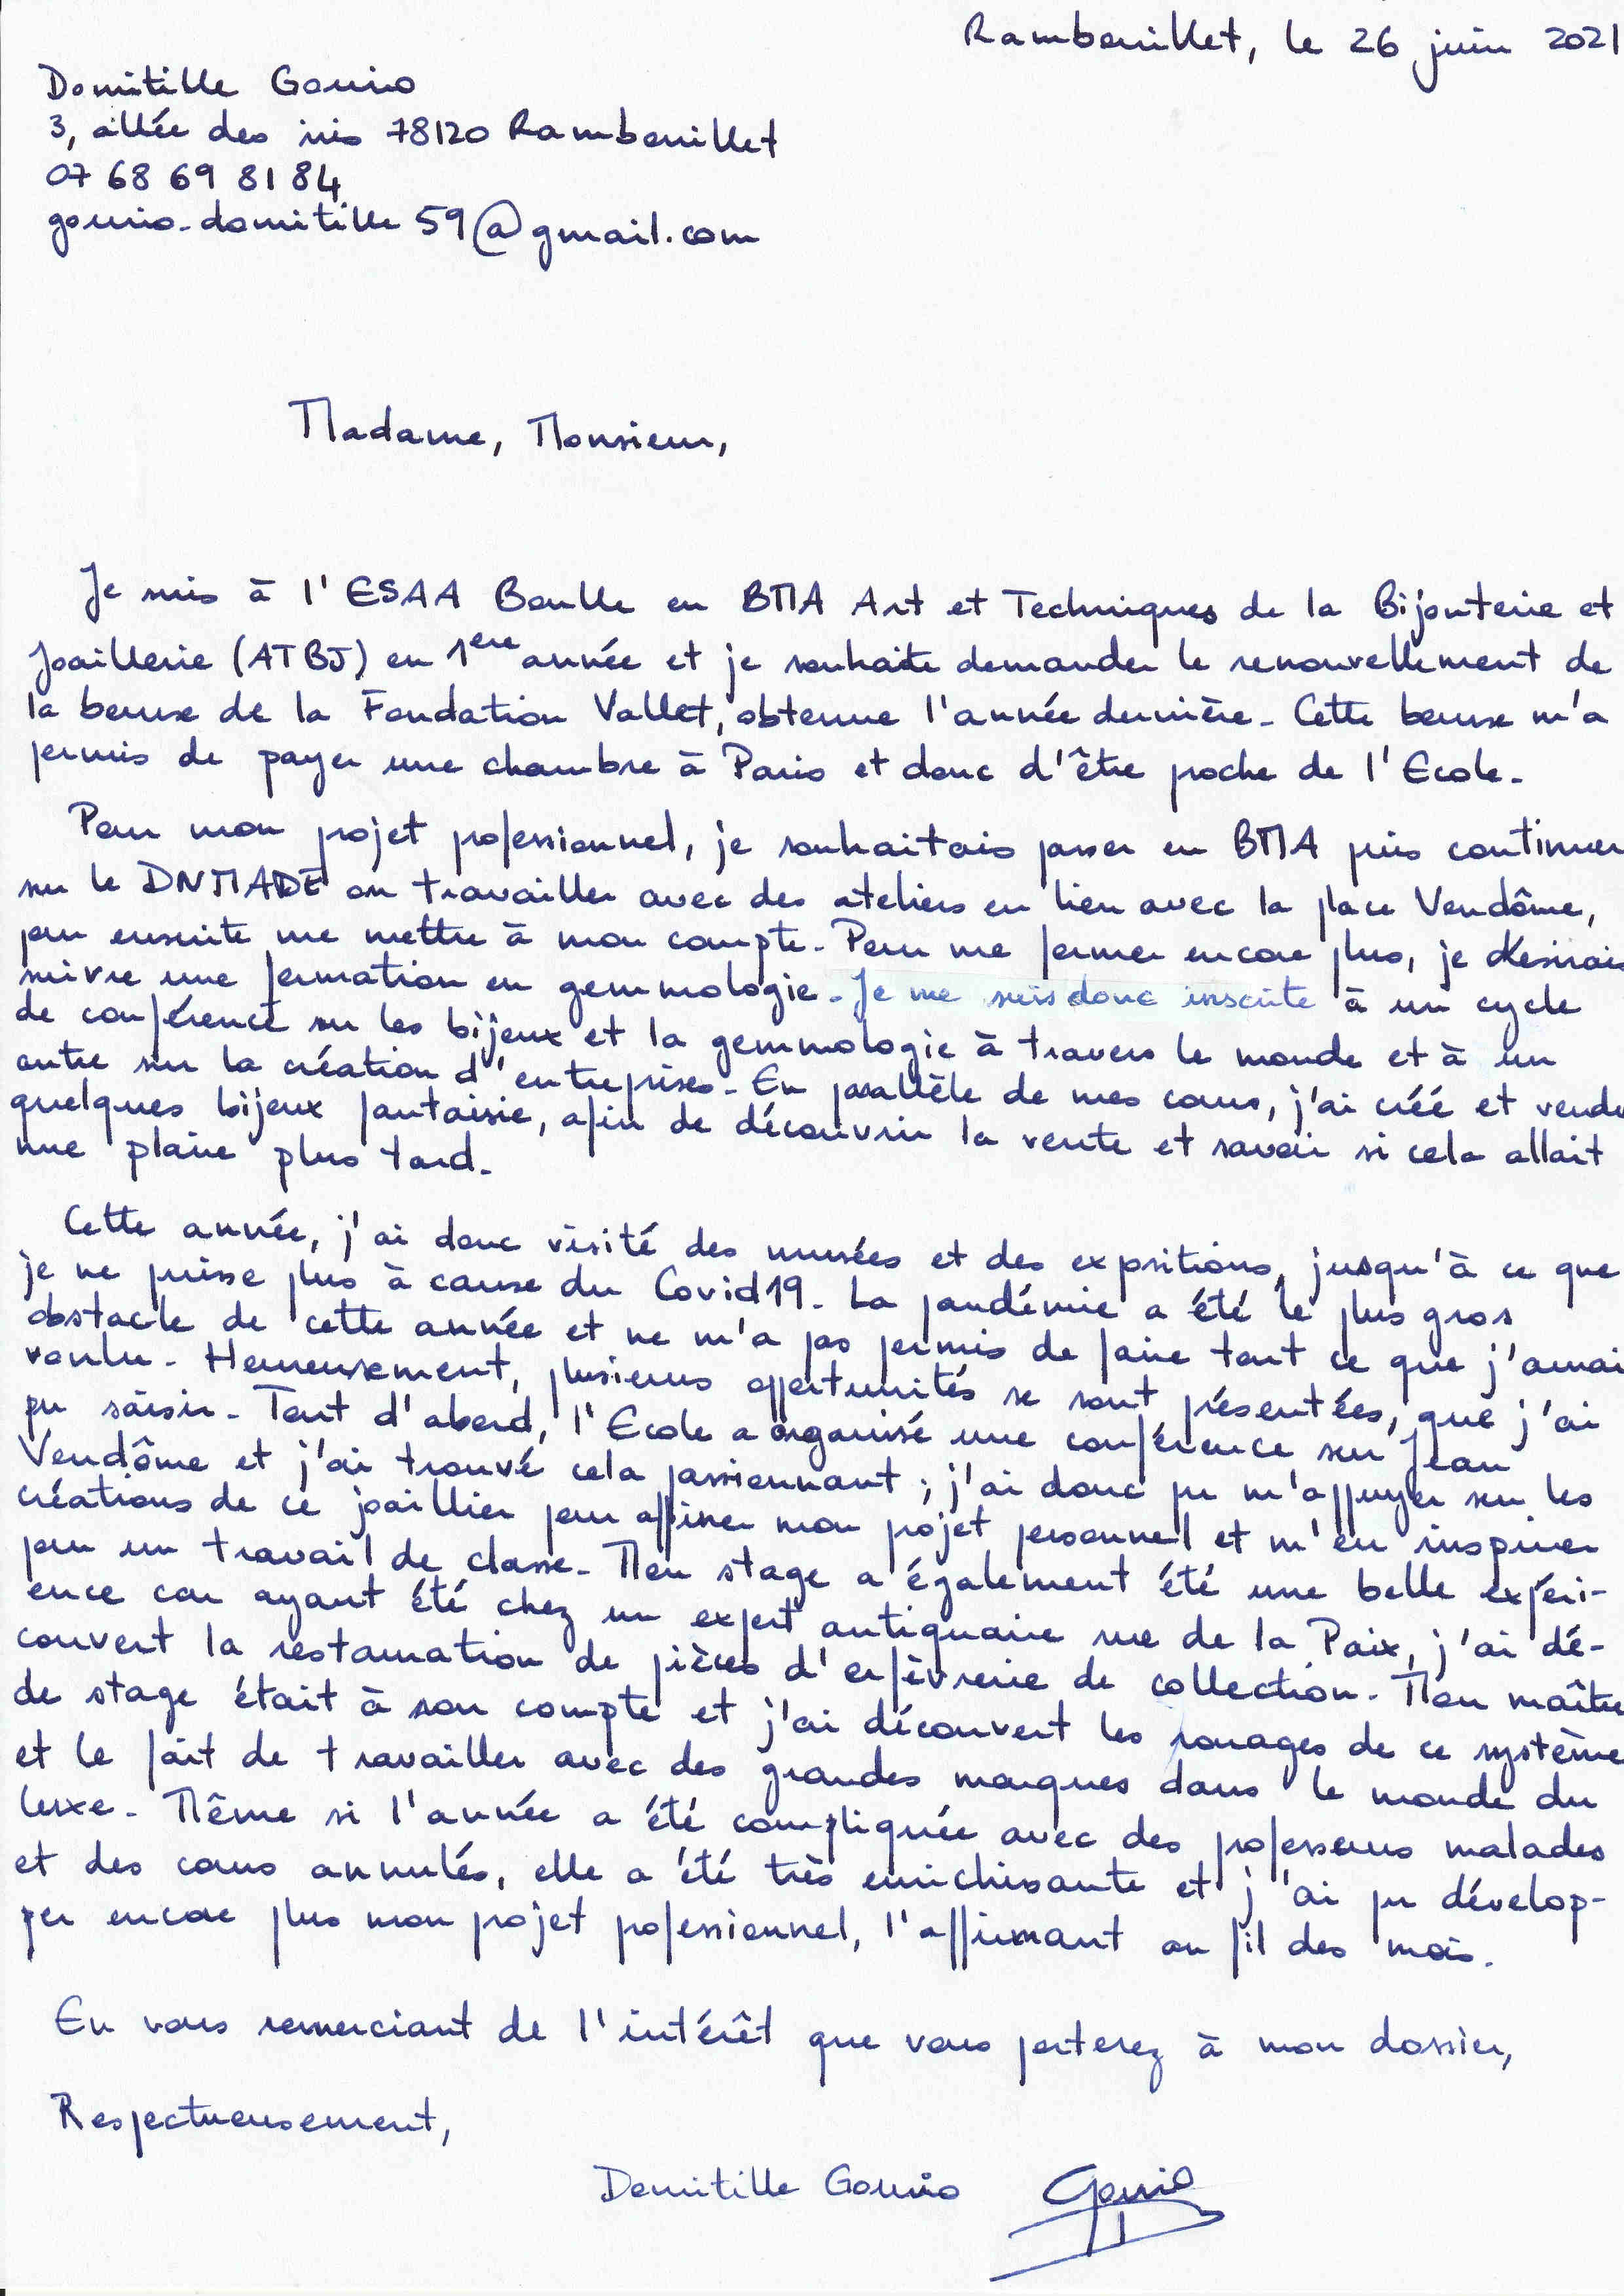 Rambouillet, le 26 juin 2021
Domitille Gourio
3, allée des iris 78120 Rambouillet
07 68 69 81 84
gourio.domitille59@gmail.com
Madame, Monsieur,
Je suis à l'ESAA Boulle en BMA Art et Techniques de la Bijouterie et
Joaillerie (ATBJ) en 1ere année et je souhaite demander le renouvellement de
la bourse de la Fondation Vallet, obtenue l'année dernière. Cette bourse m'a
permis de payer une chambre à Paris et donc d'être proche de l'Ecole.
Pour mon projet professionnel, je souhaitais passer en BMA puis continuer
sur le DNMADE ou travailler avec des ateliers en lien avec la place Vendôme,
pour ensuite me mettre à mon compte. Pour me former encore plus, je désirais
suivre une formation en gemmologie. Je me suis donc inscrite à un cycle
de conférence sur les bijoux et la gemmologie à travers le monde et à un
autre sur la création d'entreprises. En parallèle de mes cours, j'ai créé et vendu
quelques bijoux fantaisie, afin de découvrir la vente et savoir si cela allait
me plaire plus tard.
Cette année, j'ai donc visité des musées et des expositions, jusqu'à ce que
je ne puisse plus à cause du Covid19. La pandémie a été le plus gros
obstacle de cette année et ne m'a pas permis de faire tout ce que j'aurai
voulu. Heureusement, plusieurs opportunités se sont présentées, que j'ai
pu saisir. Tout d'abord, l'Ecole a organisé une conférence sur Jean
Vendôme et j'ai trouvé cela passionnant ; j'ai donc pu m'appuyer sur les
créations de ce joaillier pour affiner mon projet personnel et m'en inspirer
pour un travail de classe. Mon stage a également été une belle expéri-
ence car ayant été chez un expert antiquaire rue de la Paix, j'ai dé-
couvert la restauration de pièces d'orfèvrerie de collection. Mon maître
de stage était à son compte et j'ai découvert les rouages de ce système
et le fait de travailler avec des grandes marques dans le monde du
luxe. Même si l'année a été compliquée avec des professeurs malades
et des cours annulés, elle a été très enrichissante et j'ai pu dévelop-
per encore plus mon projet professionnel, l'affirmant au fil des mois.
En vous remerciant de l'intérêt que vous porterez à mon dossier,
Respectueusement,
Domitille Gourio Gourio